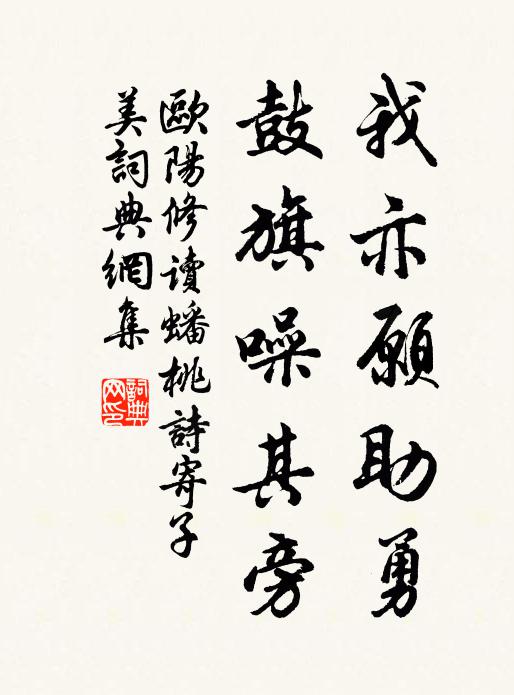 我亦願助勇
鼓旗噪其旁
歐陽修讀蟠桃詩寄子
美詞典網集
詞典
网印